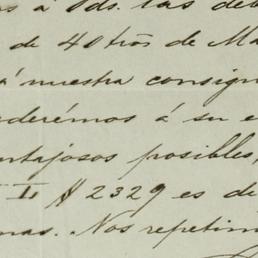 á Vds. las deb
de 40 trós de Ma
á nuestra consign
derémos á su e
ntajosos posibles,
L $ 2329 es de
mas. Nos repetim